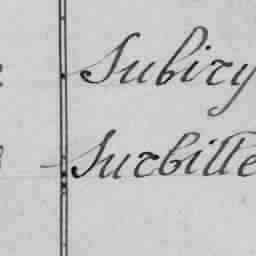 Subiry
Surbitte